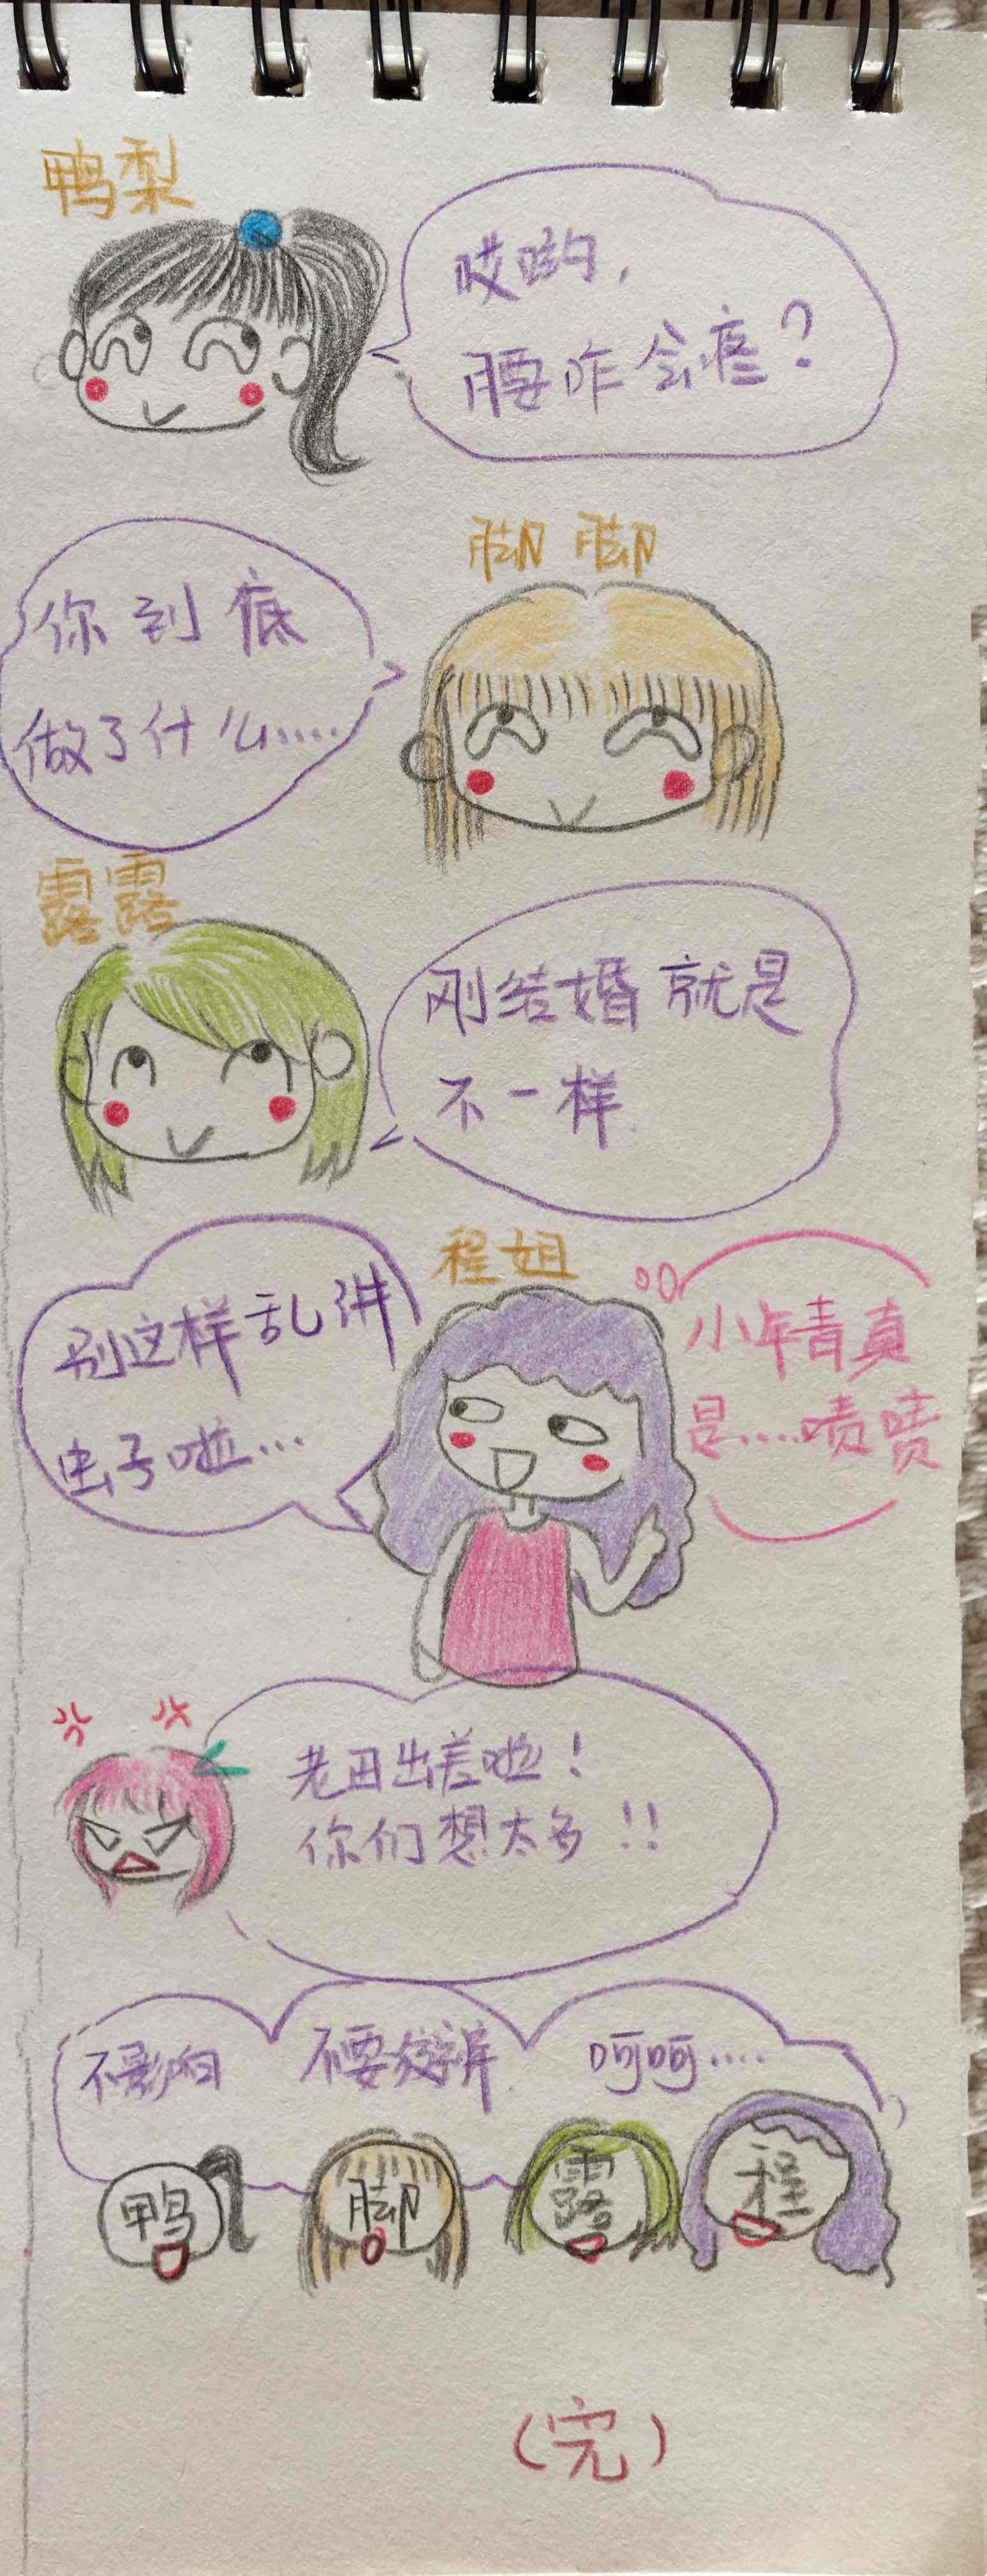 鸭梨
哎哟,
腰咋会疼?
脚脚
你到底
做了什么.....
露露
刚结婚就是
不一样.
程姐
别这样乱讲
虫子啦...
小年青真
是....啧啧
老田出差啦!
你们想太多!!
不影响
不要
呵呵....
鸭
脚
露
程
(完)